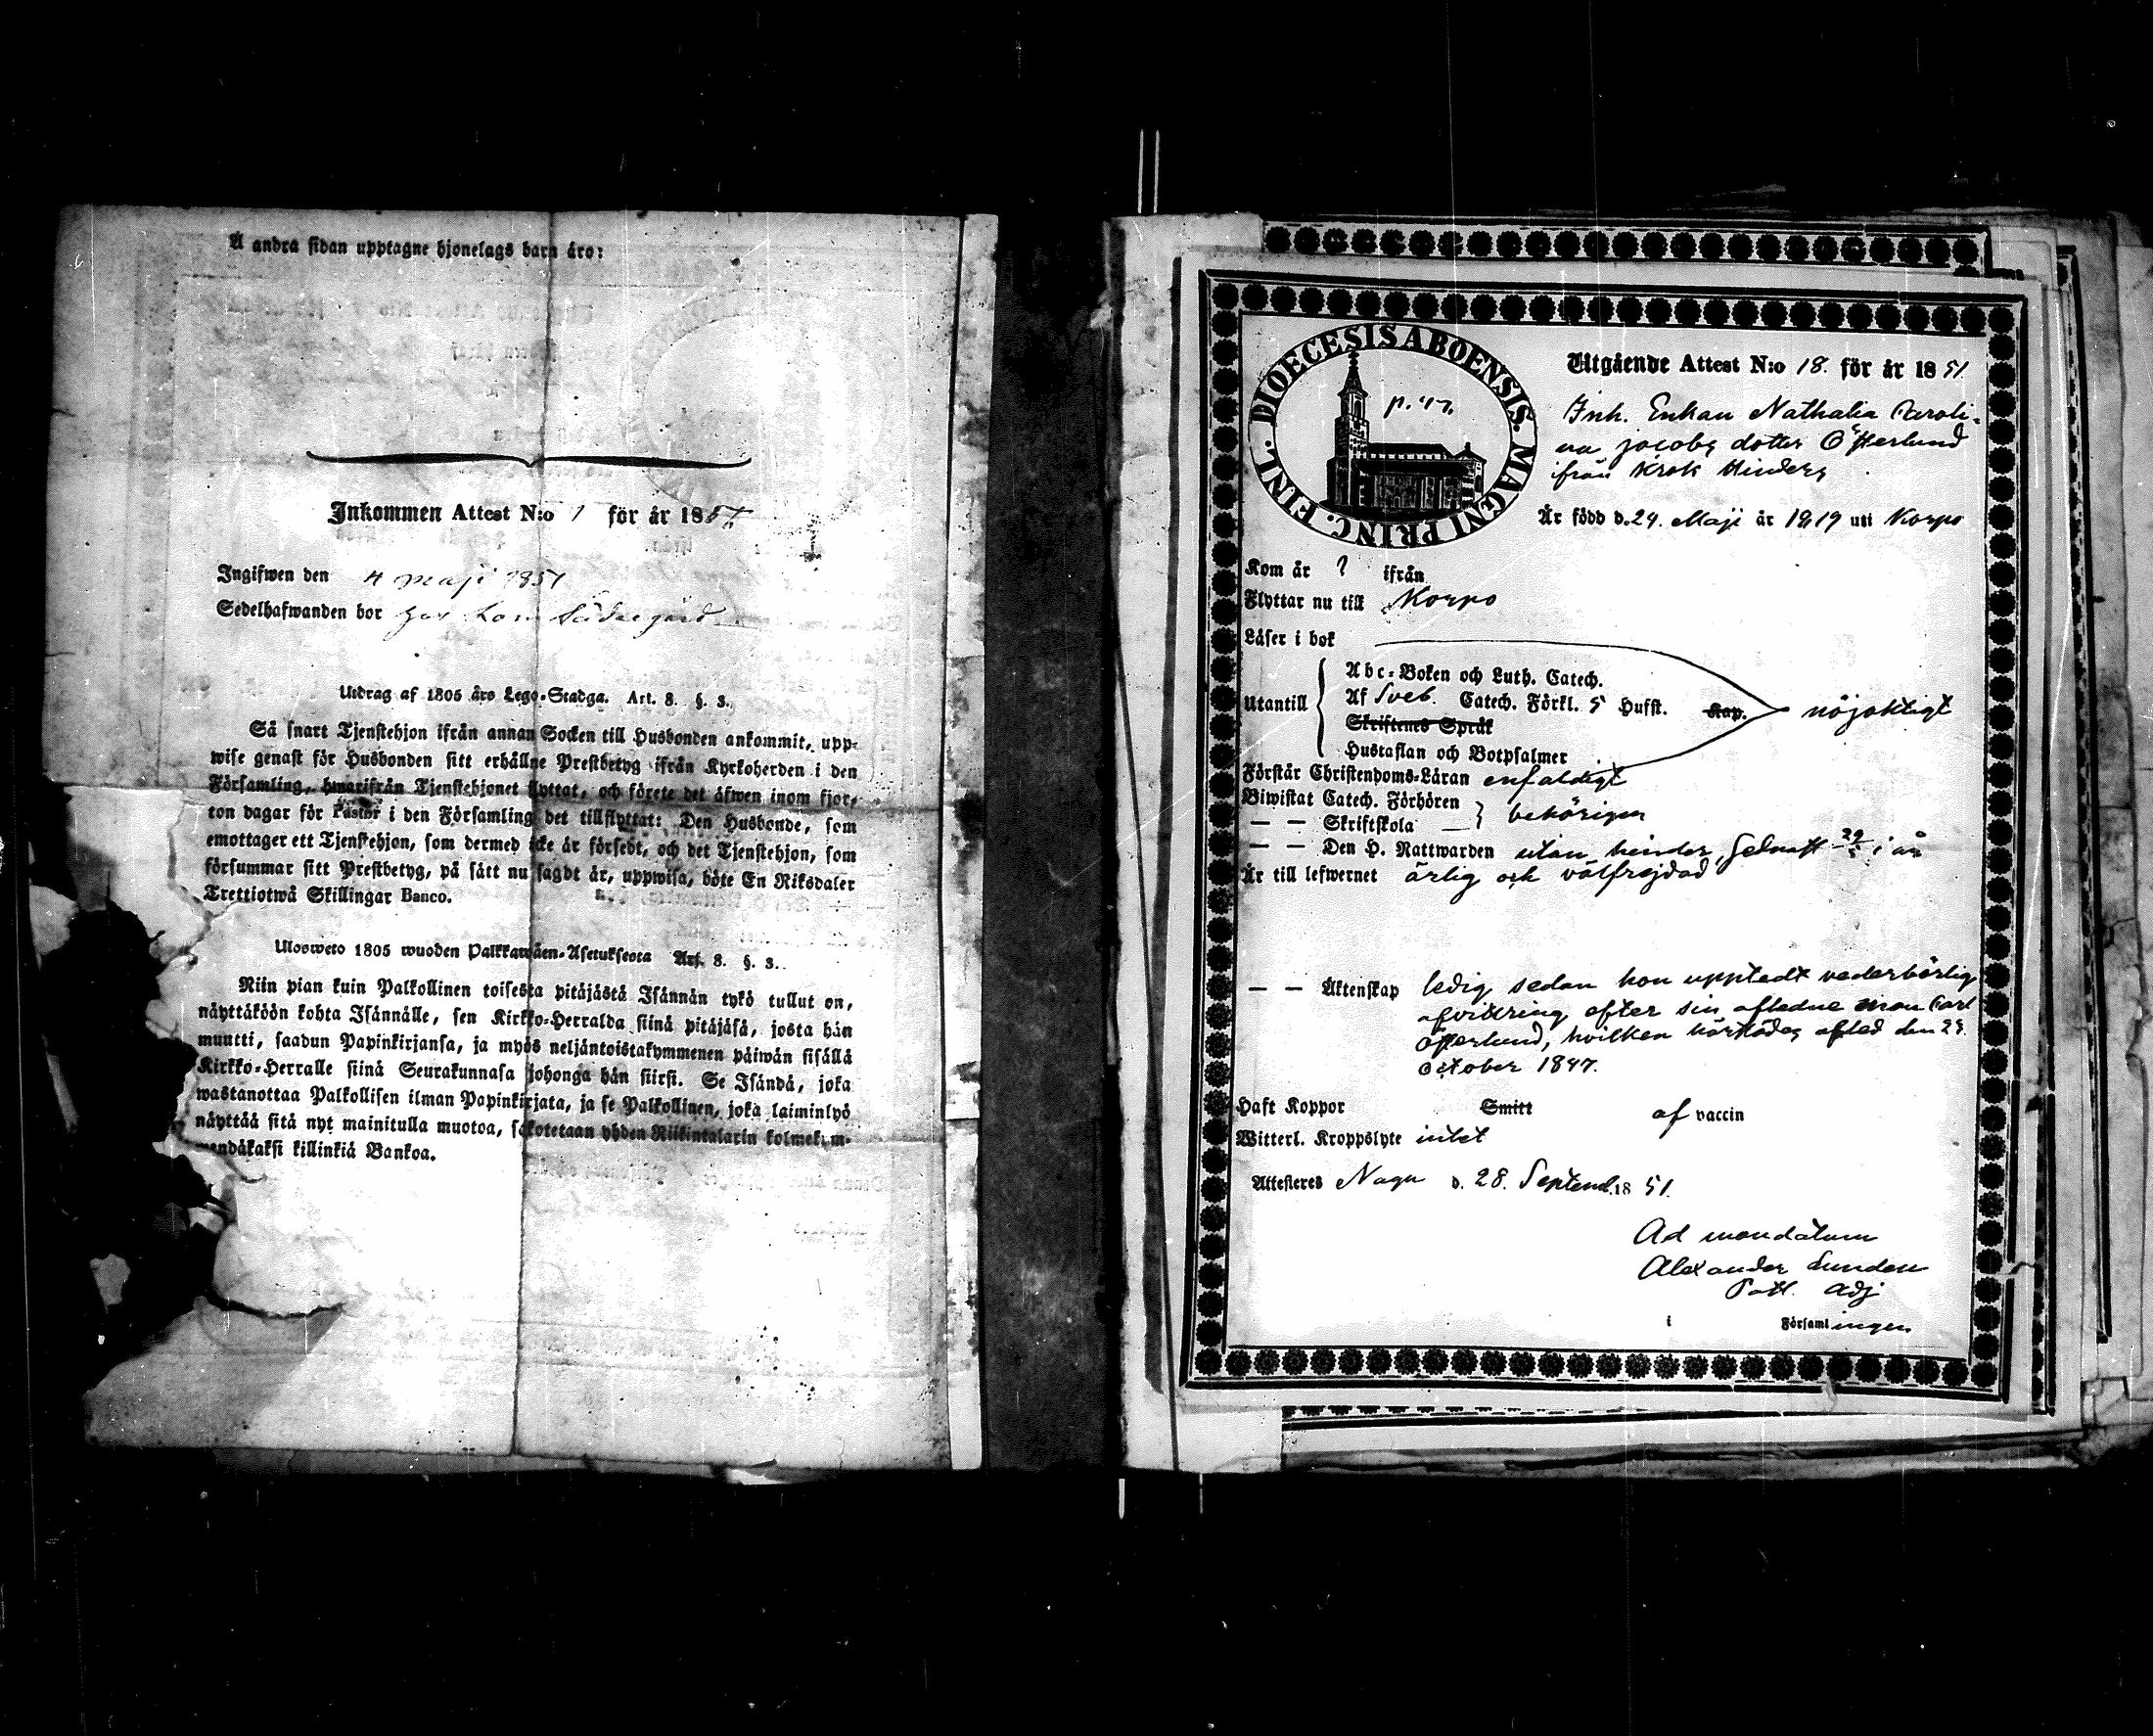 Å andra sidan upptagne hjonelags barn äro:
Inkommen Attest N:o 1 för år 1851
Ingifwen den 4 maji 1851
Sedelhafwanden bor hos
Utdrag af 1805 års Lego-Stadga. Art. 8. §. 3.
Så snart Tjenstehjon ifrån annan Socken till Husbonden ankommit, upp-
wise genast för Husbonden sitt erhållne Prestbetyg ifrån Kyrkoherden i den
Församling, hwarifrån Tjenstehjonet flyttat, och förete det äfwen inom fjor-
ton dagar för Pastor i den Församling det tillflyttat: Den Husbonde, som
emottager ett Tjenstehjon, som dermed icke är försedt, och det Tjenstehjon, som
försummar sitt Prestbetyg, på sätt nu sagdt är, uppwisa, böte En Riksdaler
Trettiotwå Skillingar Banco.
Ulosweto 1805 wuoden Palkkawäen-Asetuksesta Art. 8. §. 3.
Niin pian kuin Palkollinen toisesta pitäjästä Isännän tykö tullut on,
näyttäköön kohta Isännälle, sen Kirkko-Herralda siinä pitäjäsä, josta hän
muutti, saadun Papinkirjansa, ja myös neljäntoistakymmenen päiwän sisällä
Kirkko-Herralle siinä Seurakunnasa johonga hän siirsi. Se Isändä, joka
wastanottaa Palkollisen ilman Papinkirjata, ja se Palkollinen, joka laiminlyö
näyttää sitä nyt mainitulla muotoa, sakotetaan yhden Riikintalarin kolmekym-
mendäkaksi killinkiä Bankoa.
DIOECESIS ABOENSIS. MAGNI PRINC. FINL.
p. 47.
Utgående Attest N:o 18. för år 1851
Inh. Enkan Nathalia Caroli-
na Jacobs dotter Österlund
ifrån Krok Hinders
Är född d. 24. Maji år 1819 uti Korpo
Kom år ? ifrån
Flyttar nu till Korpo
Läser i bok
Utantill
Abc-Boken och Luth. Catech.
Af Sveb. Catech. Förkl. 5 Hufst. Kap. nöjaktigt
Skriftenes Språk
Hustaflan och Botpsalmer
Förstår Christendoms-Läran enfaldigt
Biwistat Catech. Förhören
— — Skriftskola — behörigen
— — Den H. Nattwarden utan hinder, sednast i år
Är till lefwernet ärlig och välfrejdad
— — Äktenskap ledig sedan hon upptedt vederbörlig
afvittring efter sin aflidne man Carl
Österlund, hvilken afled den
October 1847.
Haft Koppor Smitt af vaccin
Witterl. Kroppslyte intet
Attesteras Nagu d. 28. Septemb. 1851.
Ad mandatum
Alexander Lunden
Past. Adj
i Församlingen